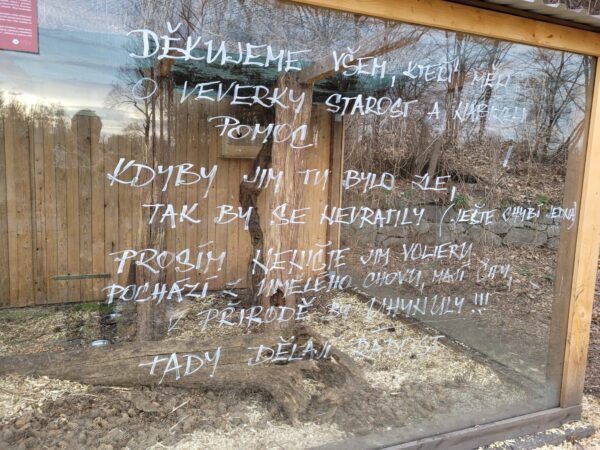 DĚKUJEME VŠEM, KTEŘÍ MĚLI
O VEVERKY STAROST A NABÍZELI
POMOC !
KDYBY JIM TU BYLO ZLE,
TAK BY SE NEVRÁTILY (JEŠTĚ CHYBÍ JEDNA)
PROSÍM NENIČTE JIM VOLIERU
POCHÁZÍ Z UMĚLÉHO CHOVU, MAJÍ ČIPY,
V PŘÍRODĚ BY UHYNULY !!!
TADY DĚLAJÍ RADOST